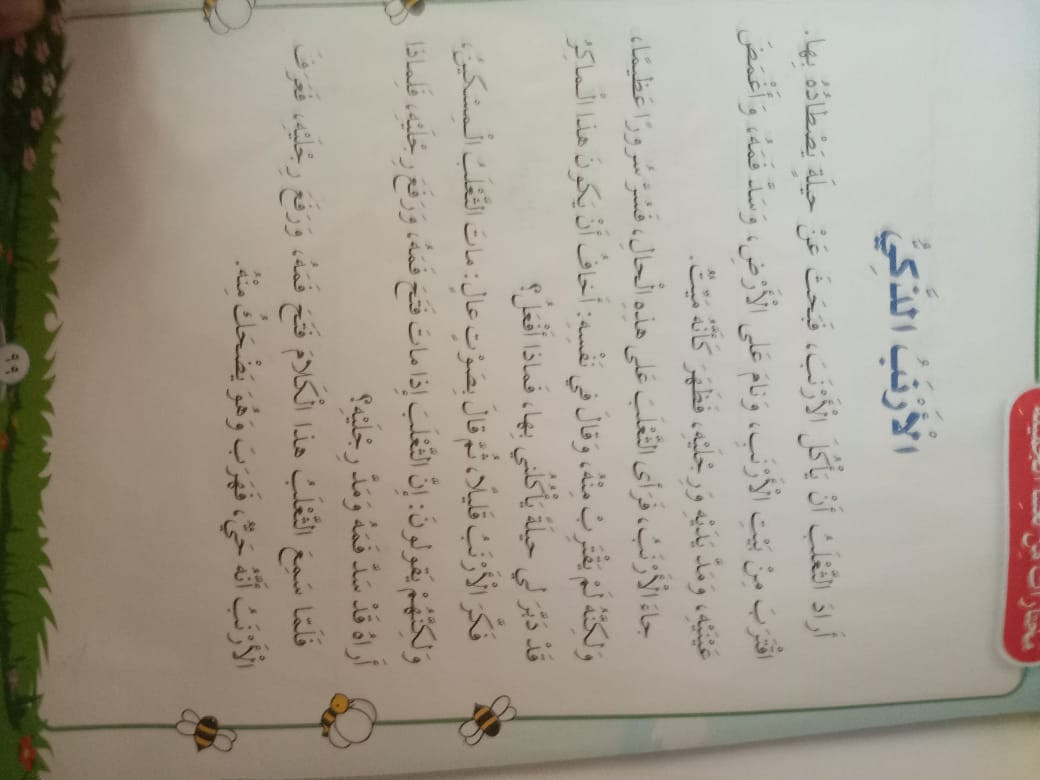 الْأَرْنَبُ الذَّكِيُّ
أَرادَ الثَّعْلَبُ أَنْ يَأْكُلَ الْأَرْنَبَ، فَبَحَثَ عَنْ حيلَةٍ يَصْطادُهُ بِها.
اقْتَرَبَ مِنْ بَيْتِ الْأَرْنَبِ، وَنامَ عَلى الْأَرْضِ، وَسَدَّ فَمَهُ، وَأَغْمَضَ
عَيْنَيْهِ، وَمَدَّ يَدَيْهِ وَرِجْلَيْهِ، فَظَهَرَ كَأَنَّهُ مَيِّتٌ.
جاءَ الْأَرْنَبُ، فَرَأى الثَّعْلَبَ عَلى هذِهِ الْحالِ، فَسُرَّ سُرورًا عَظيمًا،
وَلكِنَّهُ لَمْ يَقْتَرِبْ مِنْهُ، وَقالَ في نَفْسِهِ: أَخافُ أَنْ يَكونَ هذا الْماكِرُ
قَدْ دَبَّرَ لي حيلَةً يَأْكُلُني بِها، فَماذا أَفْعَلُ؟
فَكَّرَ الْأَرْنَبُ قَليلًا، ثُمَّ قالَ بِصَوْتٍ عالٍ: ماتَ الثَّعْلَبُ الْمِسْكينُ،
وَلكِنَّهُمْ يَقولونَ: إِنَّ الثَّعْلَبَ إِذا ماتَ فَتَحَ فَمَهُ، وَرَفَعَ رِجْلَيْهِ، فَلِماذا
أَراهُ قَدْ سَدَّ فَمَهُ وَمَدَّ رِجْلَيْهِ؟
فَلَمّا سَمِعَ الثَّعْلَبُ هذا الْكَلامَ فَتَحَ فَمَهُ، وَرَفَعَ رِجْلَيْهِ، فَعَرَفَ
الْأَرْنَبُ أَنَّهُ حَيٌّ، فَهَرَبَ وَهُوَ يَضْحَكُ مِنْهُ.
٩٩